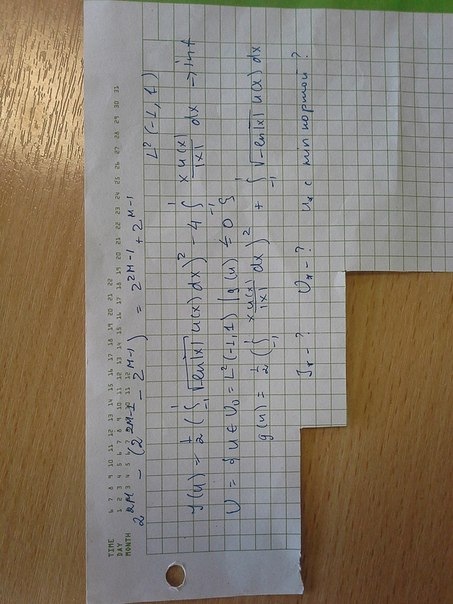 TIME 6 7 8 9 10 11 12 13 14 15 16 17 18 19 20 21 22
DAY 1 2 3 4 5 6 7 8 9 10 11 12 13 14 15 16 17 18 19 20 21 22 23 24 25 26 27 28 29 30 31
MONTH 1 2 3 4 5 6 7 8 9 10 11 12
2^{2M} - (2^{2M-1} - 2^{M-1}) = 2^{2M-1} + 2^{M-1}
L²(-1,1)
J(u) = 1/2 (∫_{-1}^{1} √(-ln|x|) u(x) dx)² - 4 ∫_{-1}^{1} x u(x)/|x| dx → inf
U = {u ∈ U₀ = L²(-1,1) | g(u) ≤ 0}
g(u) = 1/2 (∫_{-1}^{1} x u(x)/|x| dx)² + ∫_{-1}^{1} √(-ln|x|) u(x) dx
J* - ? U* - ? u* с min нормой ?